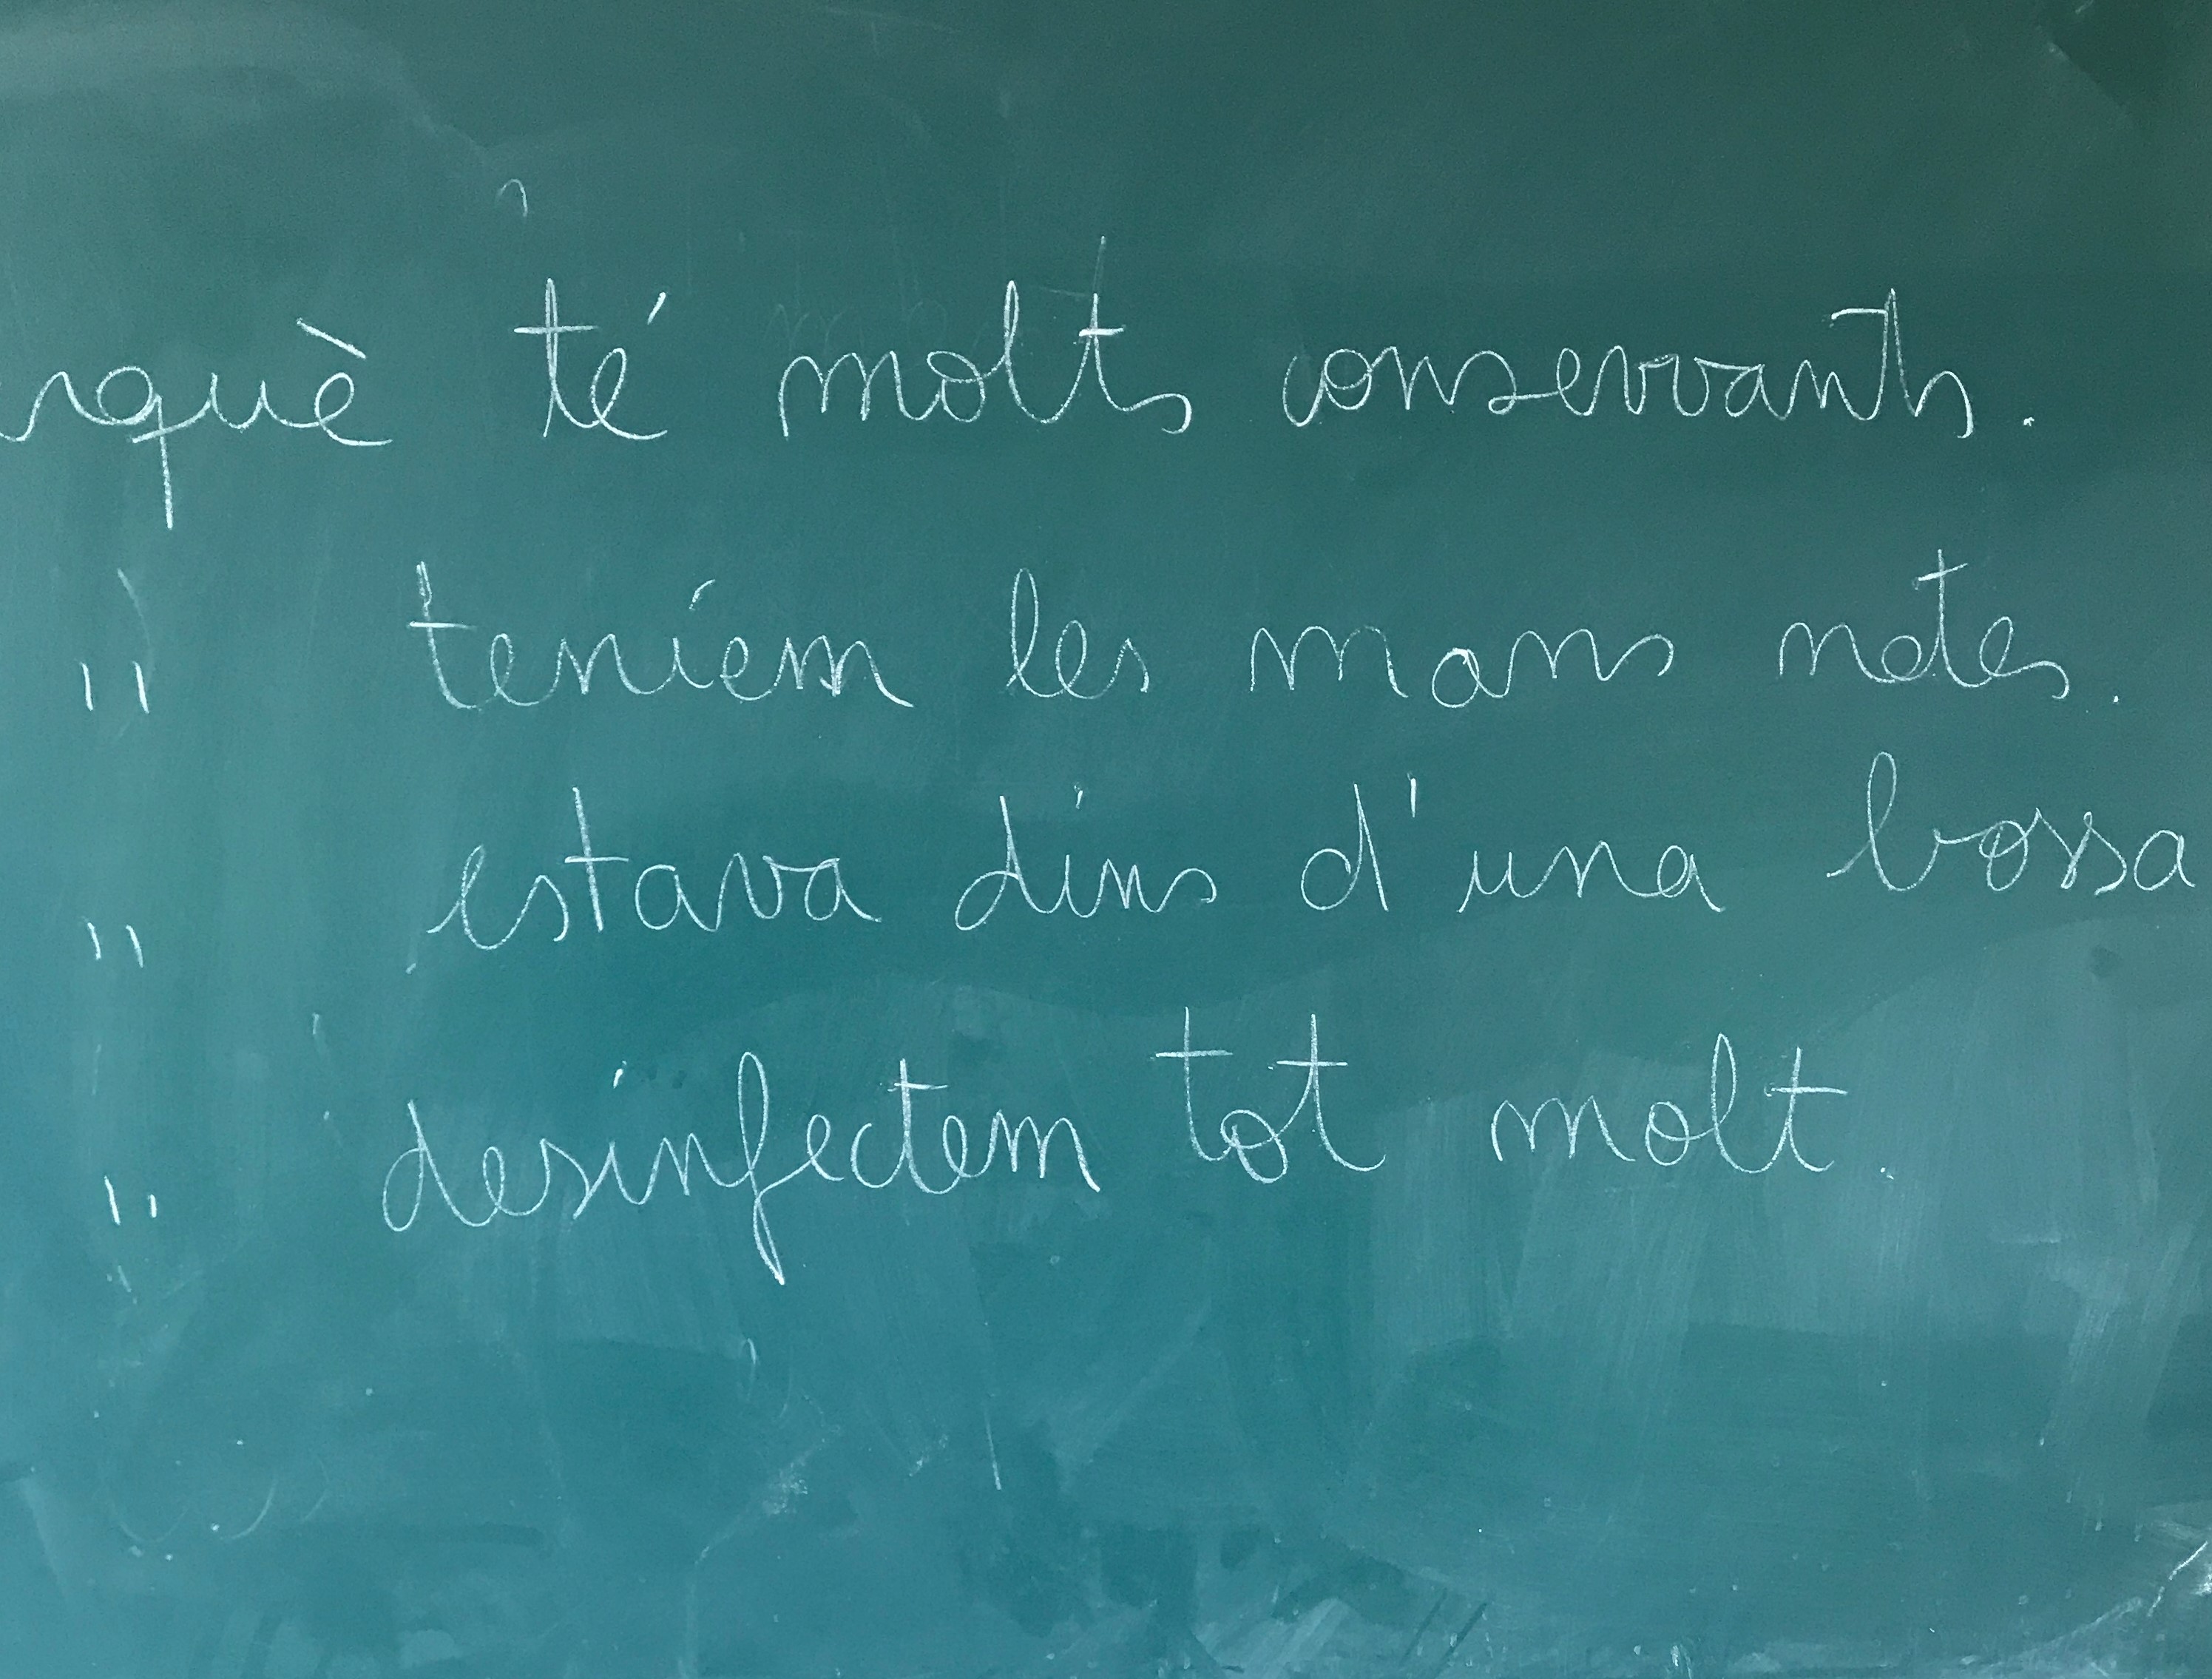 rquè té molts conservants.
" teníem les mans netes.
" estava dins d'una bossa
" desinfectem tot molt.